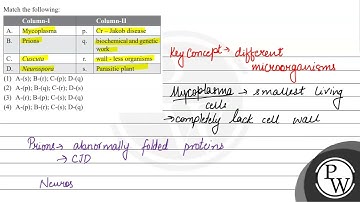 Match the following:
Column-I Column-II
A. Mycoplasma p. Cr – Jakob disease
B. Prions q. biochemical and genetic work
C. Cuscuta r. wall - less organisms
D. Neurospora s. Parasitic plant
(1) A-(s); B-(r); C-(p); D-(q)
(2) A-(p); B-(q); C-(r); D-(s)
(3) A-(r); B-(p); C-(s); D-(q)
(4) A-(p); B-(r); C-(s); D-(q)
Key Concept → different
microorganisms
Mycoplasma → smallest living
cells
→ completely lack cell wall
Prions → abnormally folded proteins
→ CJD
Neuros
PW